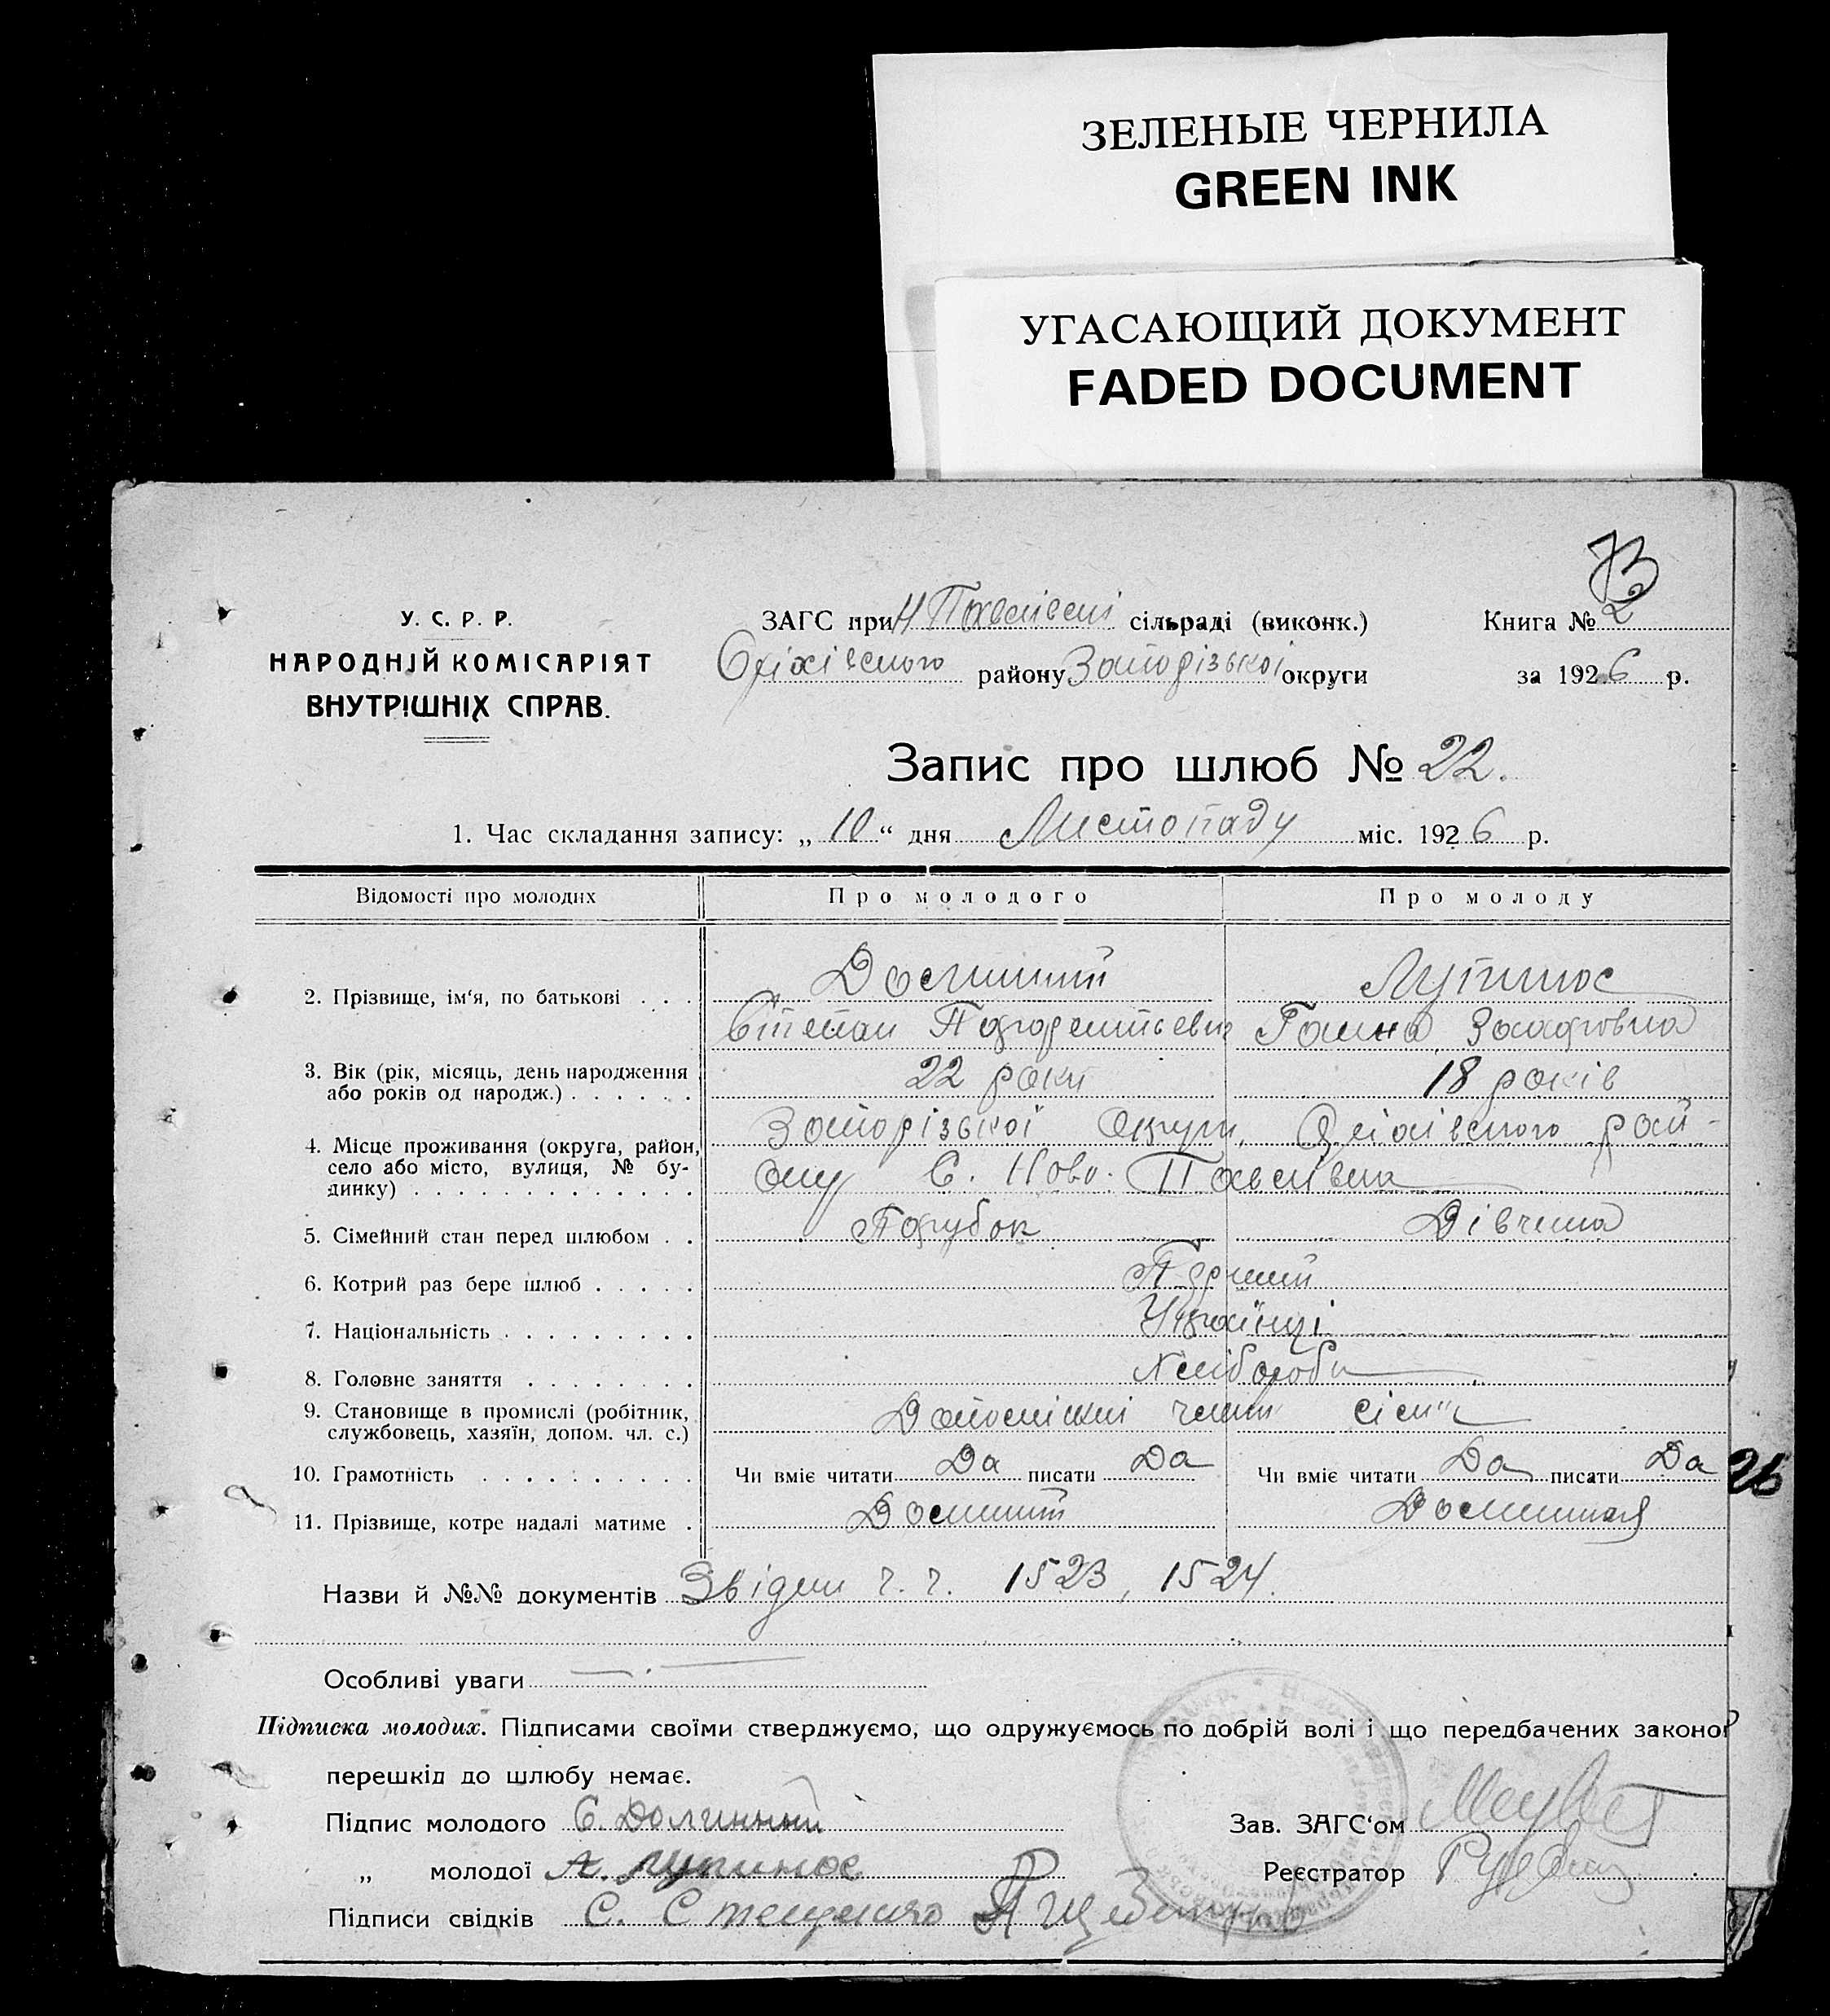 ЗЕЛЕНЫЕ ЧЕРНИЛА
GREEN INK
УГАСАЮЩИЙ ДОКУМЕНТ
FADED DOCUMENT
73
У. С. Р. Р.
НАРОДНІЙ КОМІСАРІЯТ
ВНУТРІШНІХ СПРАВ.
ЗАГС при Н Павлівські сільраді (виконк.) Книга № 2
Оріхівського району Запорізької округи за 1926 р.
Запис про шлюб № 22.
1. Час складання запису: „10“ дня Листопаду міс. 1926 р.
Відомості про молодих Про молодого Про молоду
2. Прізвище, ім'я, по батькові . . . Долинний Лупинос
Степан Ганна Захаровна
3. Вік (рік, місяць, день народження 22 роки 18 років
або років од народж.) . . . . . .
4. Місце проживання (округа, район, Запорізької округи, Оріхівського рай-
село або місто, вулиця, № бу- ону С. Ново-Павлівка
динку) . . . . . . . . . . . . .
5. Сімейний стан перед шлюбом . . Парубок Дівчина
6. Котрий раз бере шлюб . . . . . Перший
7. Національність . . . . . . . . . Українці
8. Головне заняття . . . . . . . . Хлібороби
9. Становище в промислі (робітник, члени сім'ї
службовець, хазяїн, допом. чл. с.)
10. Грамотність . . . . . . . . . . Чи вміє читати Да писати Да Чи вміє читати Да писати Да
26
11. Прізвище, котре надалі матиме . Долинний Долинная
Назви й №№ документів Звідки ч. ч. 1523, 1524.
Особливі уваги
Підписка молодих. Підписами своїми стверджуємо, що одружуємось по добрій волі і що передбачених законо
перешкід до шлюбу немає.
Підпис молодого С. Долинний Зав. ЗАГС'ом
„ молодої А. Лупинос Реєстратор
Підписи свідків С. Стещенко